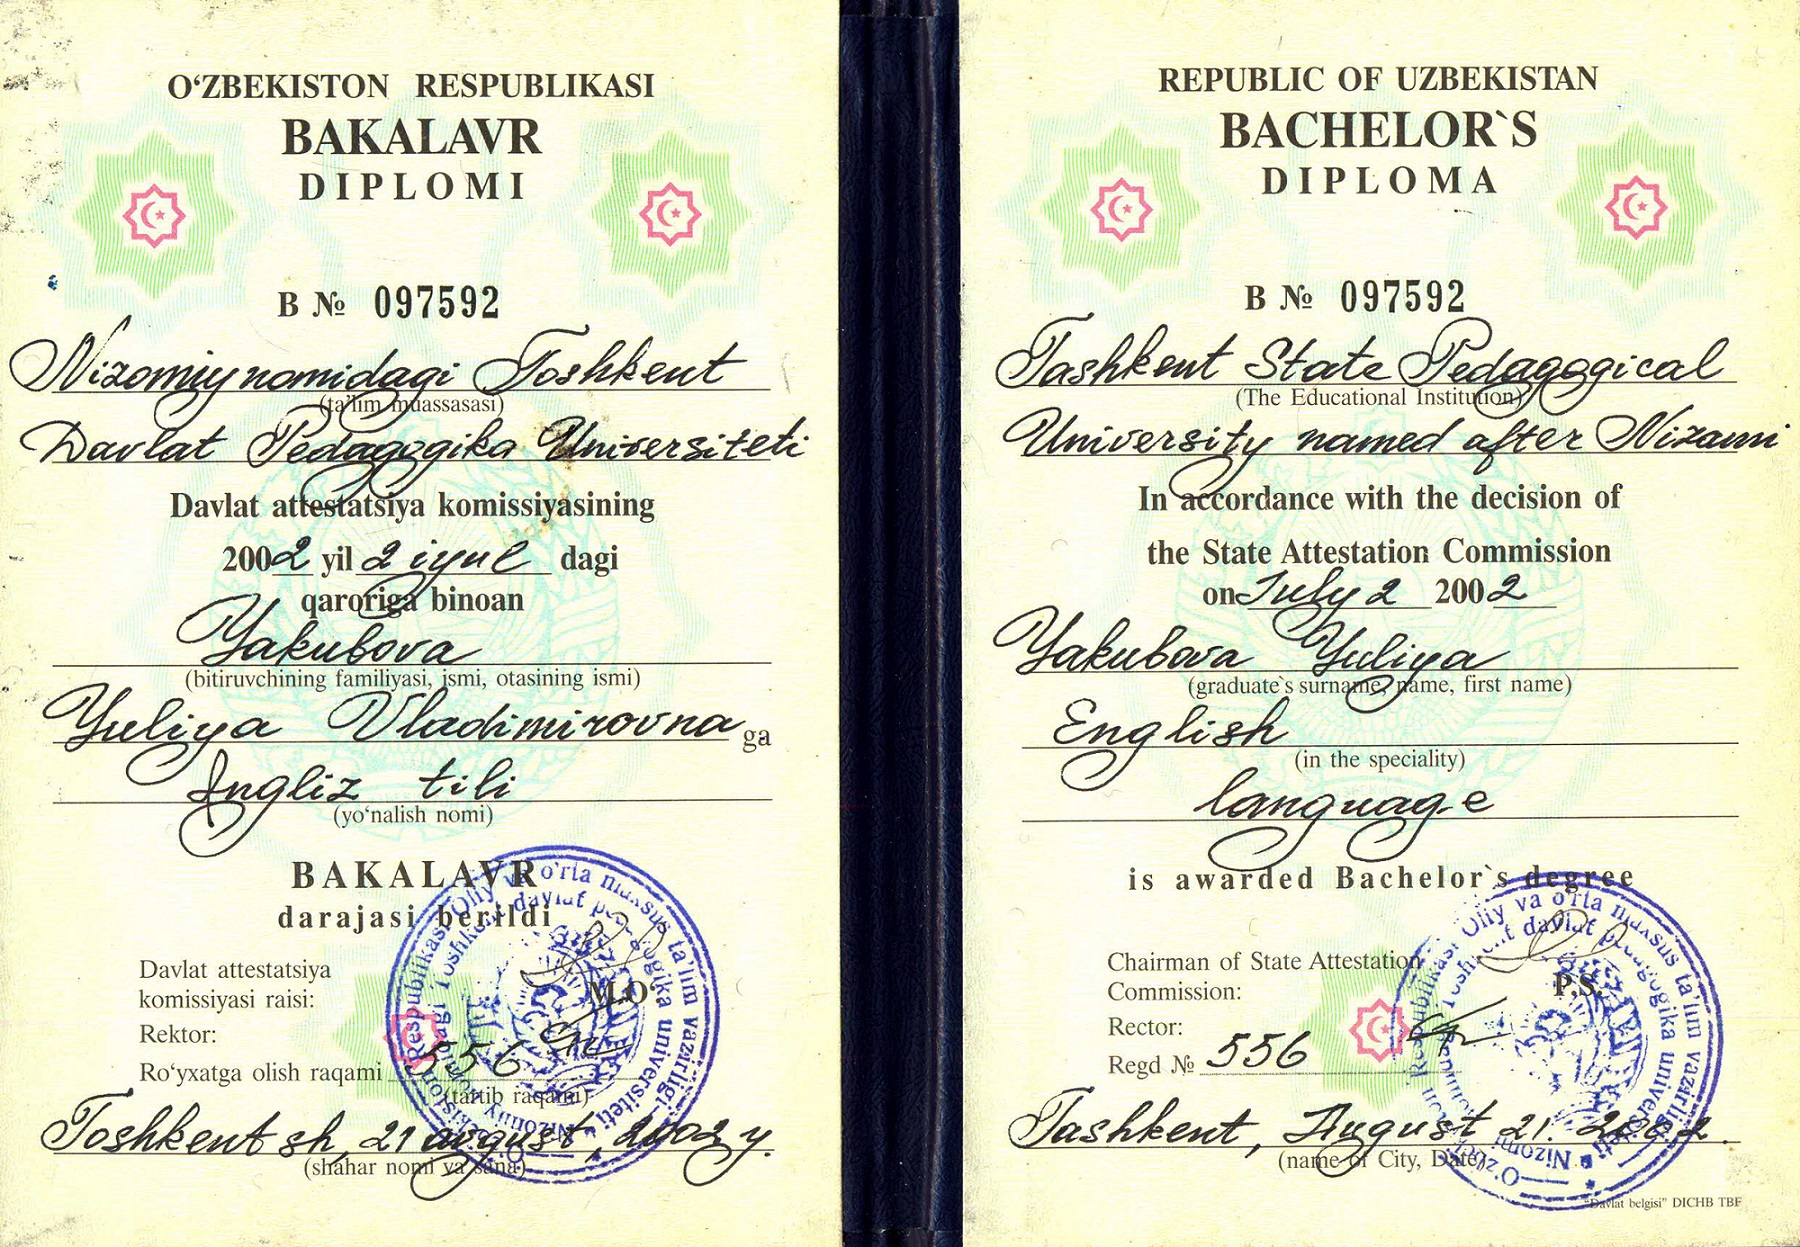 O‘ZBEKISTON RESPUBLIKASI
BAKALAVR
DIPLOMI
B № 097592
Nizomiy nomidagi Toshkent
(ta’lim muassasasi)
Davlat Pedagogika Universiteti
Davlat attestatsiya komissiyasining
2002 yil 2 iyul dagi
qaroriga binoan
Yakubova
(bitiruvchining familiyasi, ismi, otasining ismi)
Yuliya Vladimirovna ga
Ingliz tili
(yo‘nalish nomi)
BAKALAVR
darajasi berildi
Davlat attestatsiya
komissiyasi raisi:
M.O‘.
Rektor:
Ro‘yxatga olish raqami 556
(tartib raqami)
Toshkent sh, 21 avgust, 2002 y.
(shahar nomi va sana)
REPUBLIC OF UZBEKISTAN
BACHELOR`S
DIPLOMA
B № 097592
Tashkent State Pedagogical
(The Educational Institution)
University named after Nizami
In accordance with the decision of
the State Attestation Commission
on July 2 2002
Yakubova Yuliya
(graduate`s surname, name, first name)
English
(in the speciality)
language
is awarded Bachelor`s degree
Chairman of State Attestation
Commission:
P.S.
Rector:
Regd № 556
Tashkent, August 21. 2002.
(name of City, Date)
"Davlat belgisi" DICHB TBF